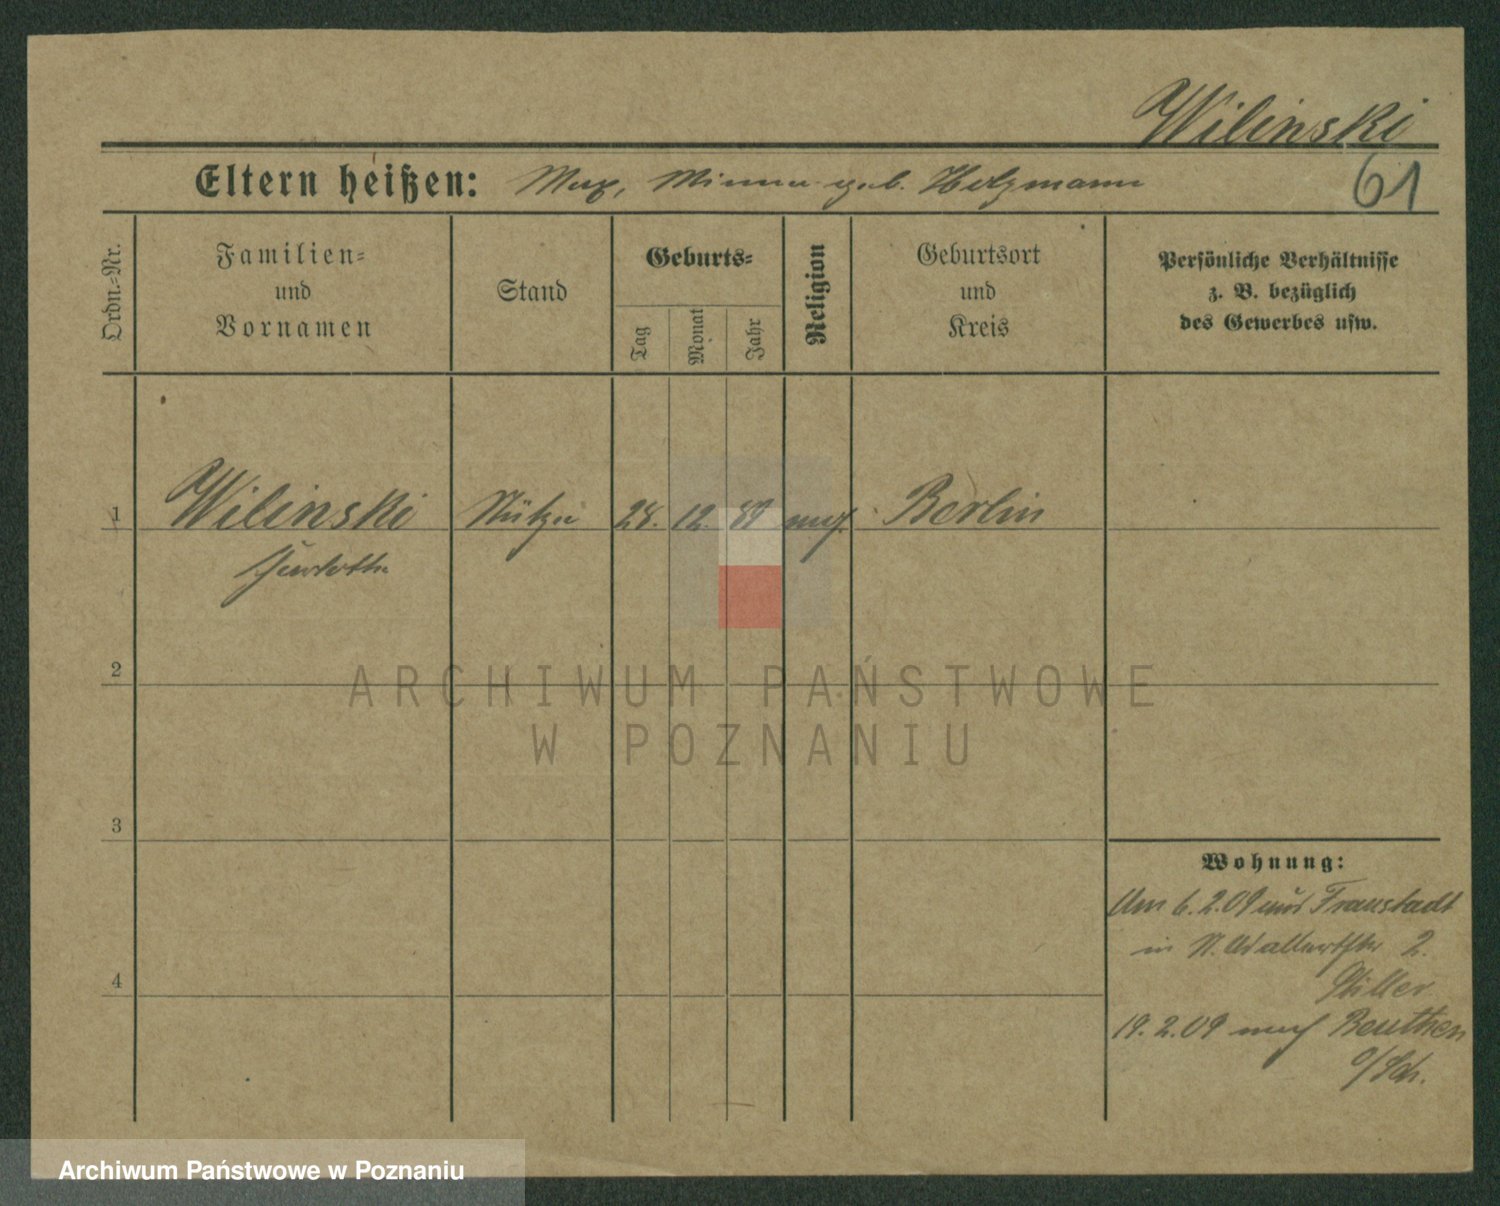 Wilinski
Eltern heißen: Max, Minna geb. Holzmann
61
Ordn.-Nr.
Familien-
und
Vornamen
Stand
Geburts-
Tag
Monat
Jahr
Religion
Geburtsort
und
Kreis
Persönliche Verhältnisse
z. B. bezüglich
des Gewerbes usw.
1 Wilinski Stütze 28. 12. 89 Berlin
2
3
4
Wohnung:
Am 6.2.09 aus Fraustadt
in St. 2.
Stiller
19.2.09 nach Beuthen
o/Sch.
ARCHIWUM PAŃSTWOWE
W POZNANIU
Archiwum Państwowe w Poznaniu